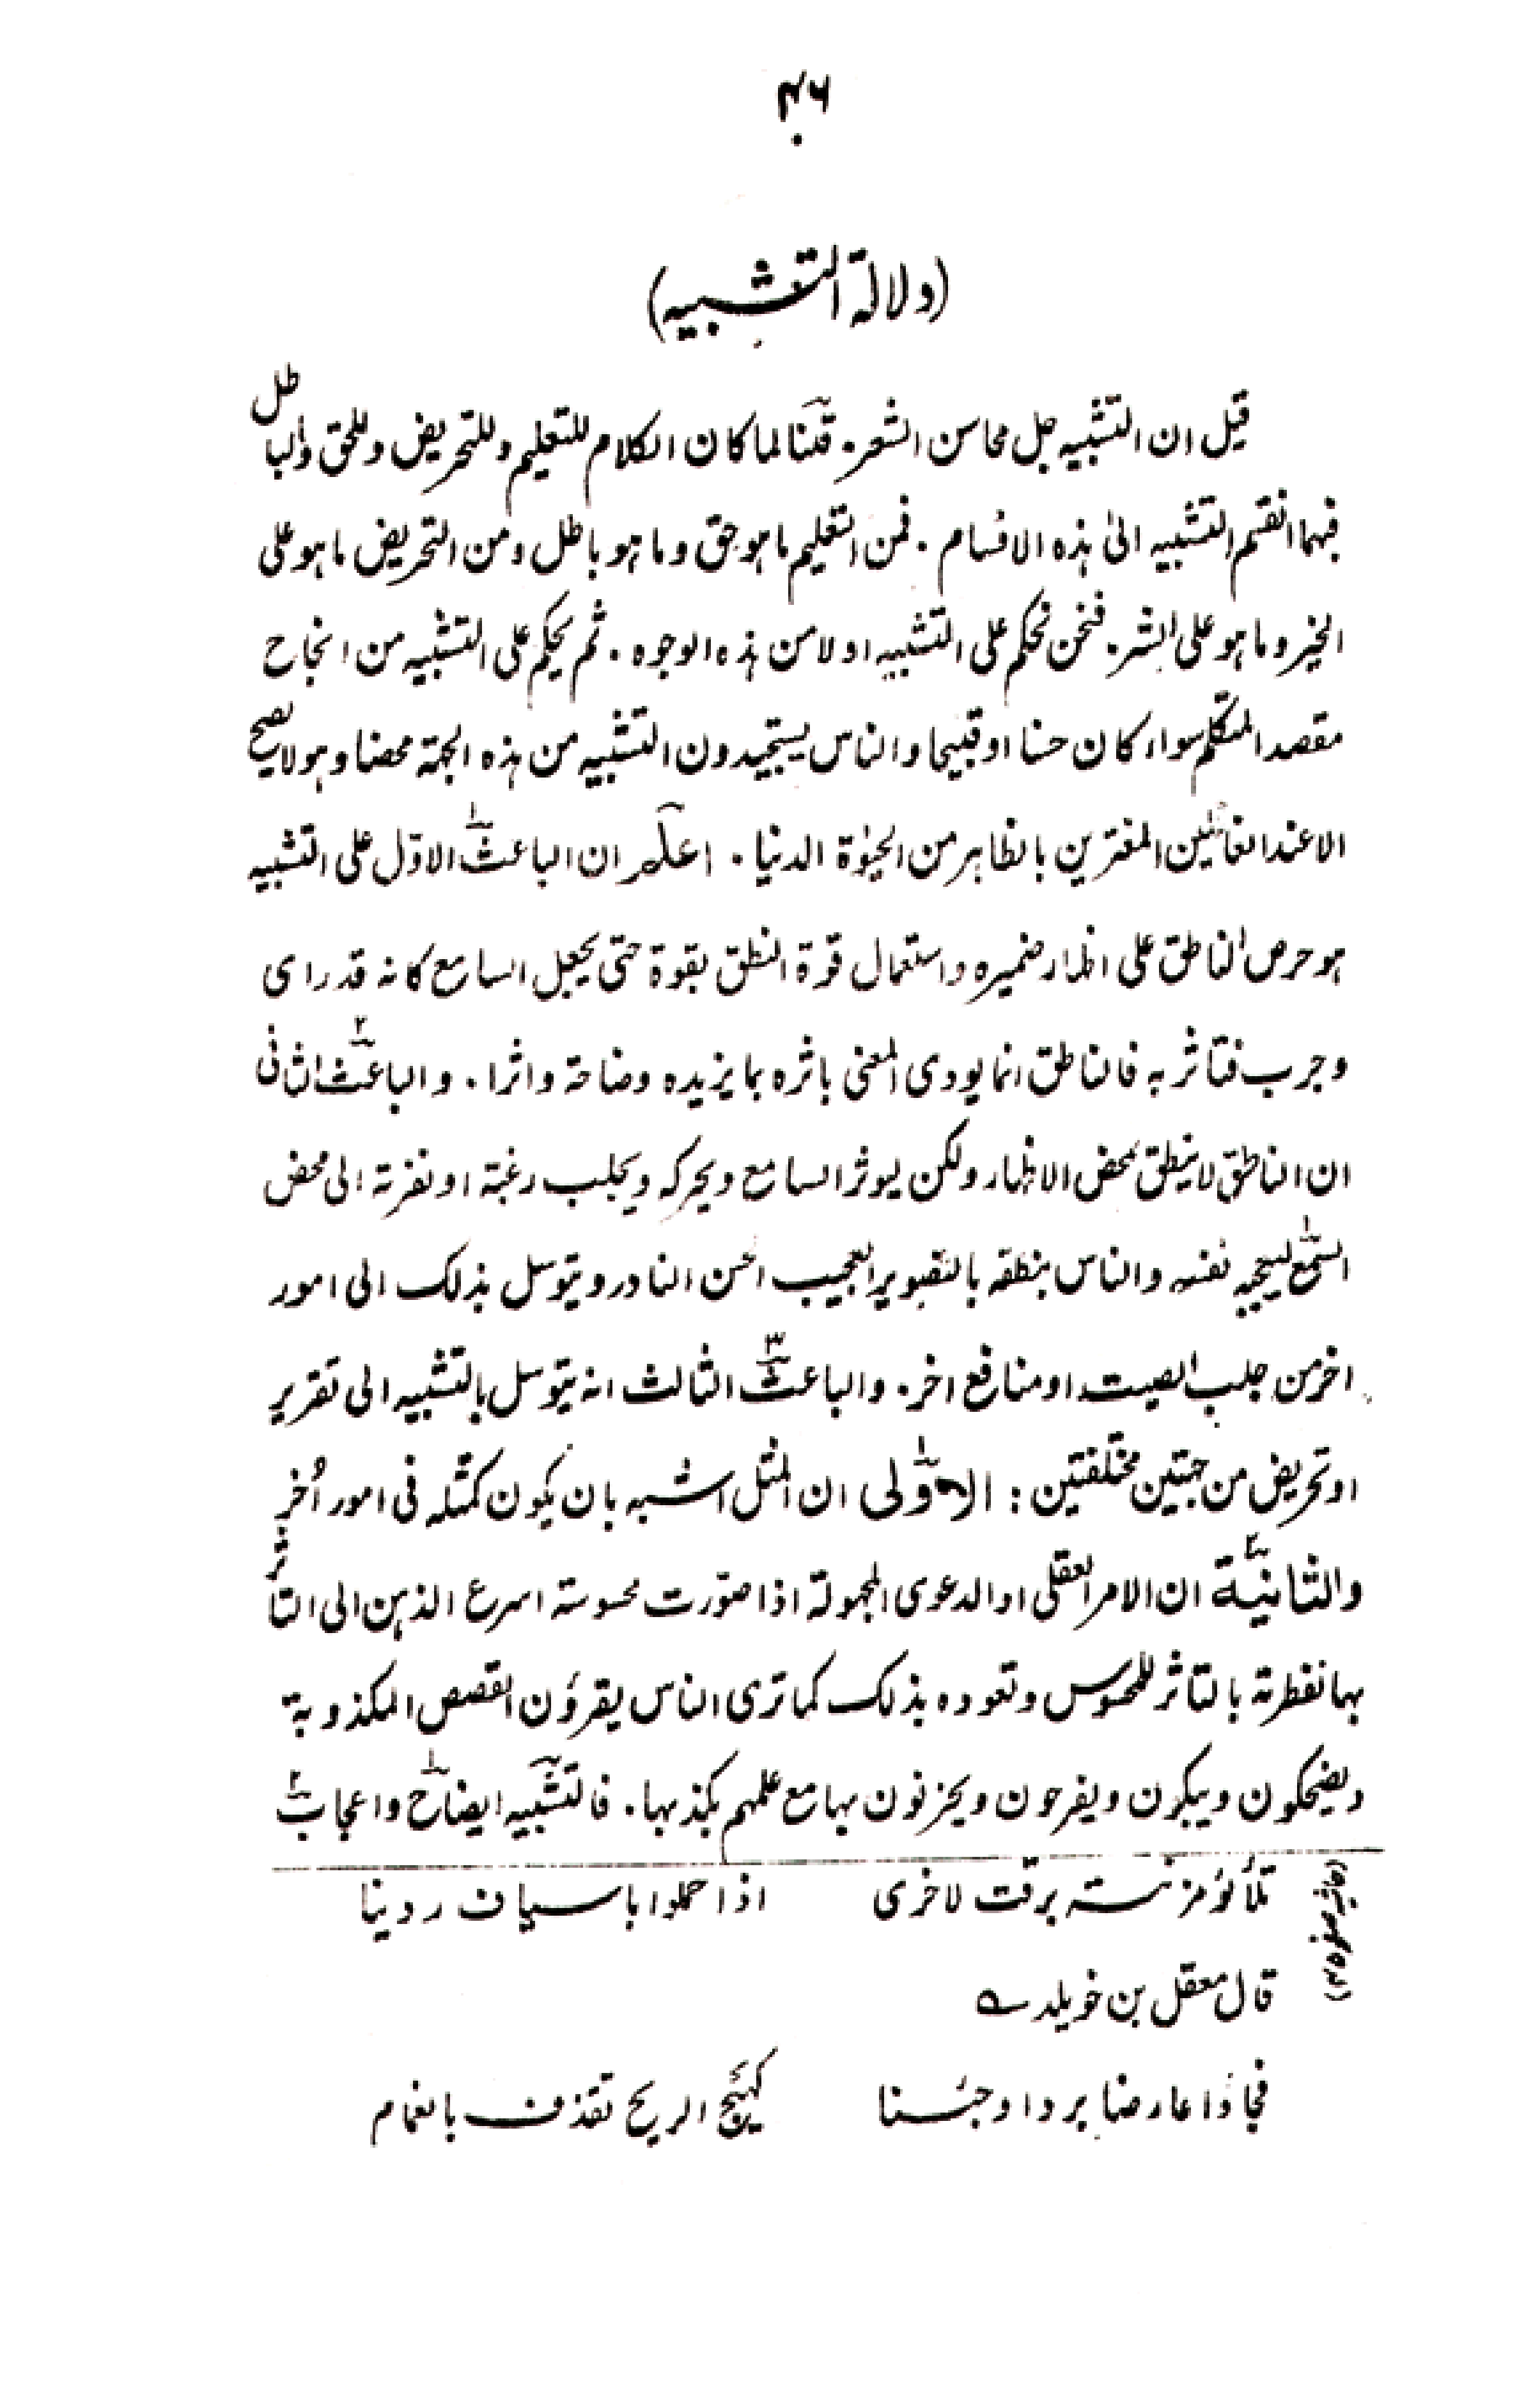 ۴۶
(دلالة التشبيه)
قيل ان التشبيه جل محاسن الشعر. قلنا لما كان الكلام للتعليم وللتحريض وللحق والباطل
فبهما انقسم التشبيه الىٰ هذه الاقسام. فمن التعليم ما هو حق وما هو باطل ومن التحريض ما هو على
الخير وما هو على الشر. فنحن نحكم على التشبيه اولا من هذه الوجوه. ثم يحكم على التشبيه من انجاح
مقصد المتكلم سواء كان حسنا او قبيحا والناس يستجيدون التشبيه من هذه الجهة محضا وهو لا يصح
الا عند الغائبين المغترين بالظاهر من الحيٰوة الدنيا. اعلم ان الباعث۱ الاوّل على التشبيه
هو حرص الناطق على اظهار ضميره واستعمال قوة النطق بقوة حتى يجعل السامع كانه قد رای
وجرب فتاثر به فالناطق انما يودی المعنی باثره بما يزيده وضاحة واثرا. والباعث۲ الثانی
ان الناطق لا ينطق لمحض الاظهار ولكن ليوثر السامع ويحركه ويجلب رغبة او نفرته الى محض
السمع۱ ليعجبه نفسه والناس بنطقه بالتصوير العجيب الحسن النادر ويتوسل بذلك الى امور
اخر من جلب الصيت او منافع اخر. والباعث۳ الثالث انه يتوسل بالتشبيه الى تقرير
او تحريض من جهتين مختلفتين: الاولٰى۱ ان المثل اشبه بان يكون كمثله فی امور اُخر
والثانية۲ ان الامر العقلی او الدعوی المجهولة اذا صوّرت محسوسة اسرع الذهن الى التأثر
بها لفطرته بالتاثر للمحسوس وتعوده بذلك كما تری الناس يقرؤن القصص المكذوبة
ويضحكون ويبكون ويفرحون ويحزنون بها مع علمهم بكذبها. فالتشبيه ايضاح۱ واعجاب۲
(حاشيه صفحه ۴۵)
تلألؤ مزنـــة برقت لاخری اذا حملوا باسياف ردينا
قال معقل بن خويلد ـه
فجاؤا عارضا بردا وجئنا كهيج الريح تقذف بالغمام